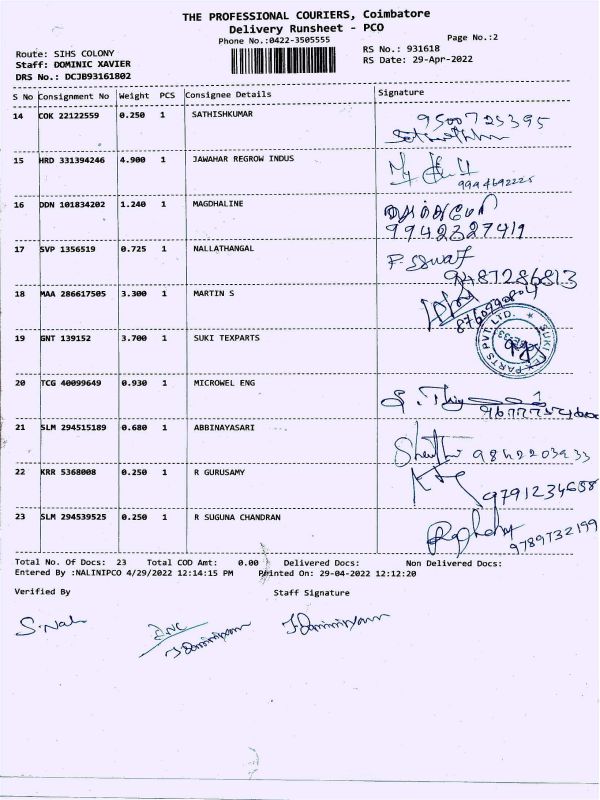 THE PROFESSIONAL COURIERS, Coimbatore
Delivery Runsheet - PCO
Phone No.:0422-3505555
Page No.:2
Route: SIHS COLONY
RS No.: 931618
Staff: DOMINIC XAVIER
RS Date: 29-Apr-2022
DRS No.: DCJB93161802
S No Consignment No Weight PCS Consignee Details Signature
14 COK 22122559 0.250 1 SATHISHKUMAR 9500725395
15 HRD 331394246 4.900 1 JAWAHAR REGROW INDUS
9994692225
16 DDN 101834202 1.240 1 MAGDHALINE
9942327419
17 SVP 1356519 0.725 1 NALLATHANGAL
9487286813
18 MAA 286617505 3.300 1 MARTIN S
19 GNT 139152 3.700 1 SUKI TEXPARTS
20 TCG 40099649 0.930 1 MICROWEL ENG
21 SLM 294515189 0.680 1 ABBINAYASARI
9842203933
22 KRR 5368008 0.250 1 R GURUSAMY
9791234658
23 SLM 294539525 0.250 1 R SUGUNA CHANDRAN
9789732199
Total No. Of Docs: 23 Total COD Amt: 0.00 Delivered Docs: Non Delivered Docs:
Entered By :NALINIPCO 4/29/2022 12:14:15 PM Printed On: 29-04-2022 12:12:20
Verified By Staff Signature